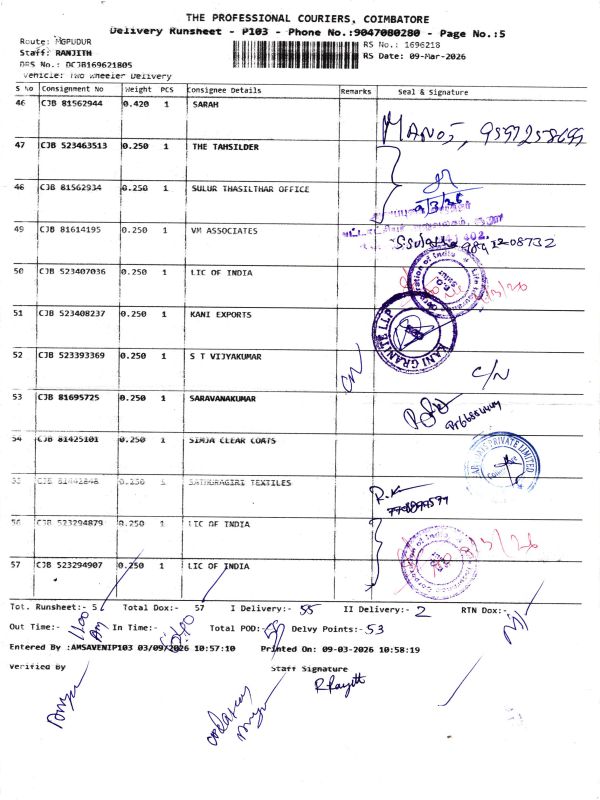 THE PROFESSIONAL COURIERS, COIMBATORE
Delivery Runsheet - P103 - Phone No.:9047080280 - Page No.:5
Route: MGPUDUR
Staff: RANJITH
DRS No.: DCJB169621805
Vehicle: Two Wheeler Delivery
RS No.: 1696218
RS Date: 09-Mar-2026
S No Consignment No Weight PCS Consignee Details Remarks Seal & Signature
46 CJB 81562944 0.420 1 SARAH
MANOJ,
47 CJB 523463513 0.250 1 THE TAHSILDER
46 CJB 81562934 0.250 1 SULUR THASILTHAR OFFICE
9/3/26
49 CJB 81614195 0.250 1 VM ASSOCIATES
50 CJB 523407036 0.250 1 LIC OF INDIA
51 CJB 523408237 0.250 1 KANI EXPORTS
KANI GRANITE LLP
52 CJB 523393369 0.250 1 S T VIJYAKUMAR
C/N
53 CJB 81695725 0.250 1 SARAVANAKUMAR
54 CJB 81425101 0.250 1 SIMJA CLEAR COATS
PRIVATE LIMITED
55 CJB 81442848 0.250 1 SATHURAGIRI TEXTILES
56 CJB 523294879 0.250 1 LIC OF INDIA
57 CJB 523294907 0.250 1 LIC OF INDIA
Tot. Runsheet:- 5 Total Dox:- 57 I Delivery:- 55 II Delivery:- 2 RTN Dox:-
Out Time:- 11.00 Am In Time:- Total POD:- Delvy Points:- 53
Entered By :AMSAVENIP103 03/09/2026 10:57:10 Printed On: 09-03-2026 10:58:19
Verified By Staff Signature